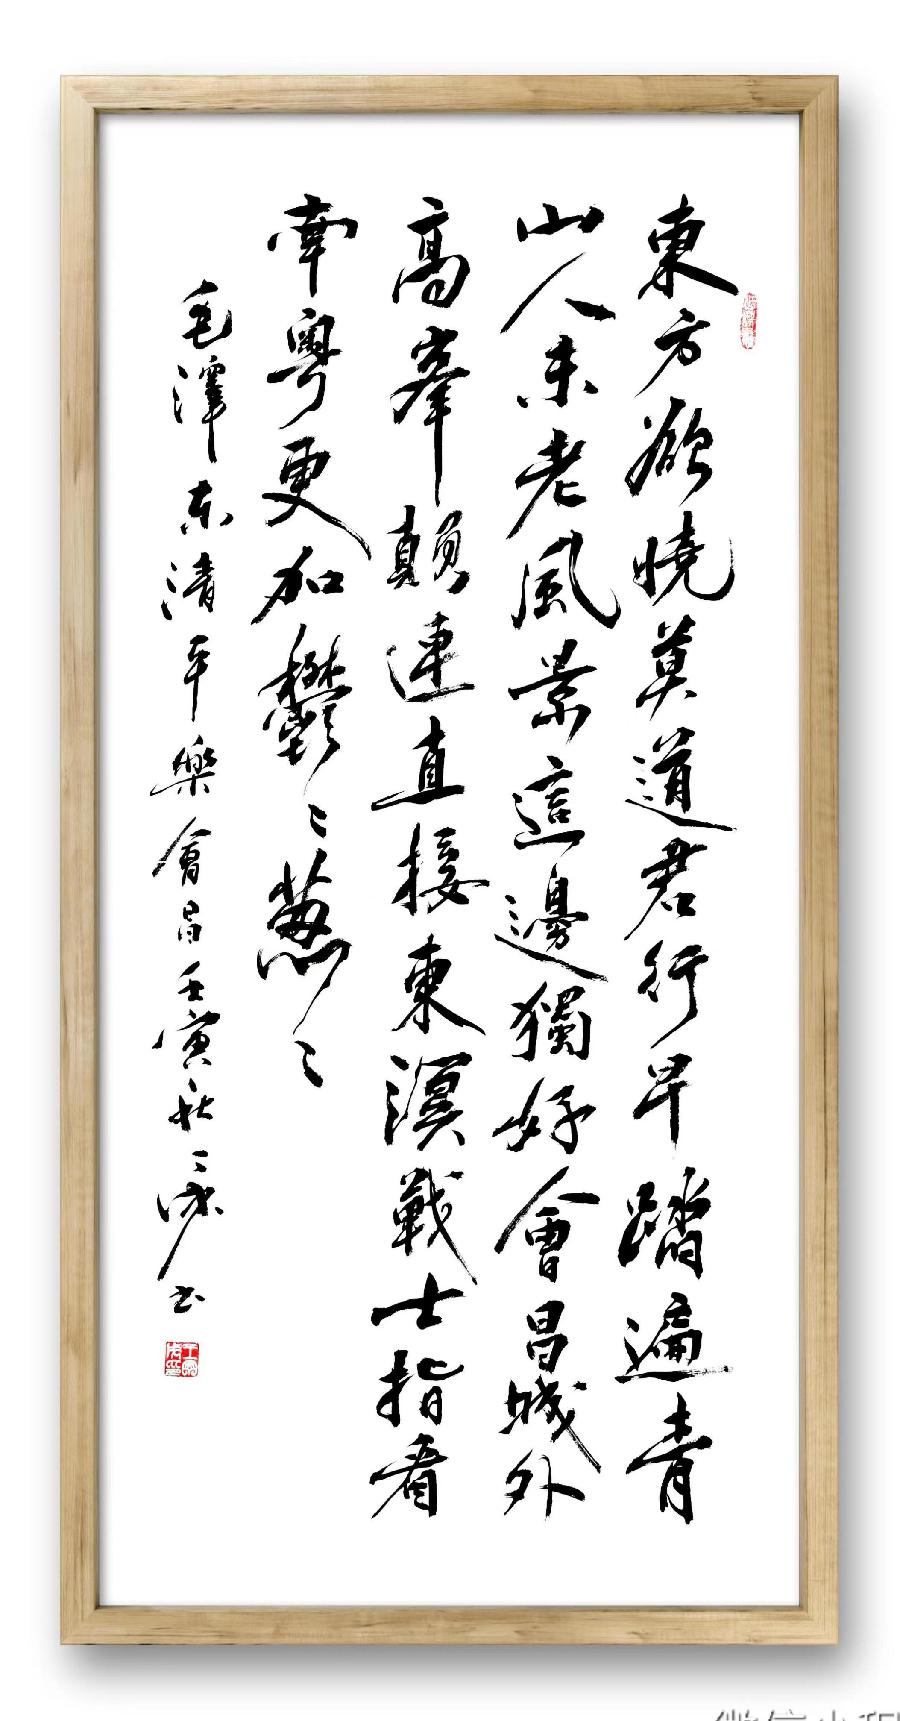 東方欲曉莫道君行早踏遍青
山人未老風景這邊獨好會昌城外
高峯顛連直接東溟戰士指看
南粵更加鬱〻蔥〻
毛澤东清平樂會昌壬寅秋书
微信小程